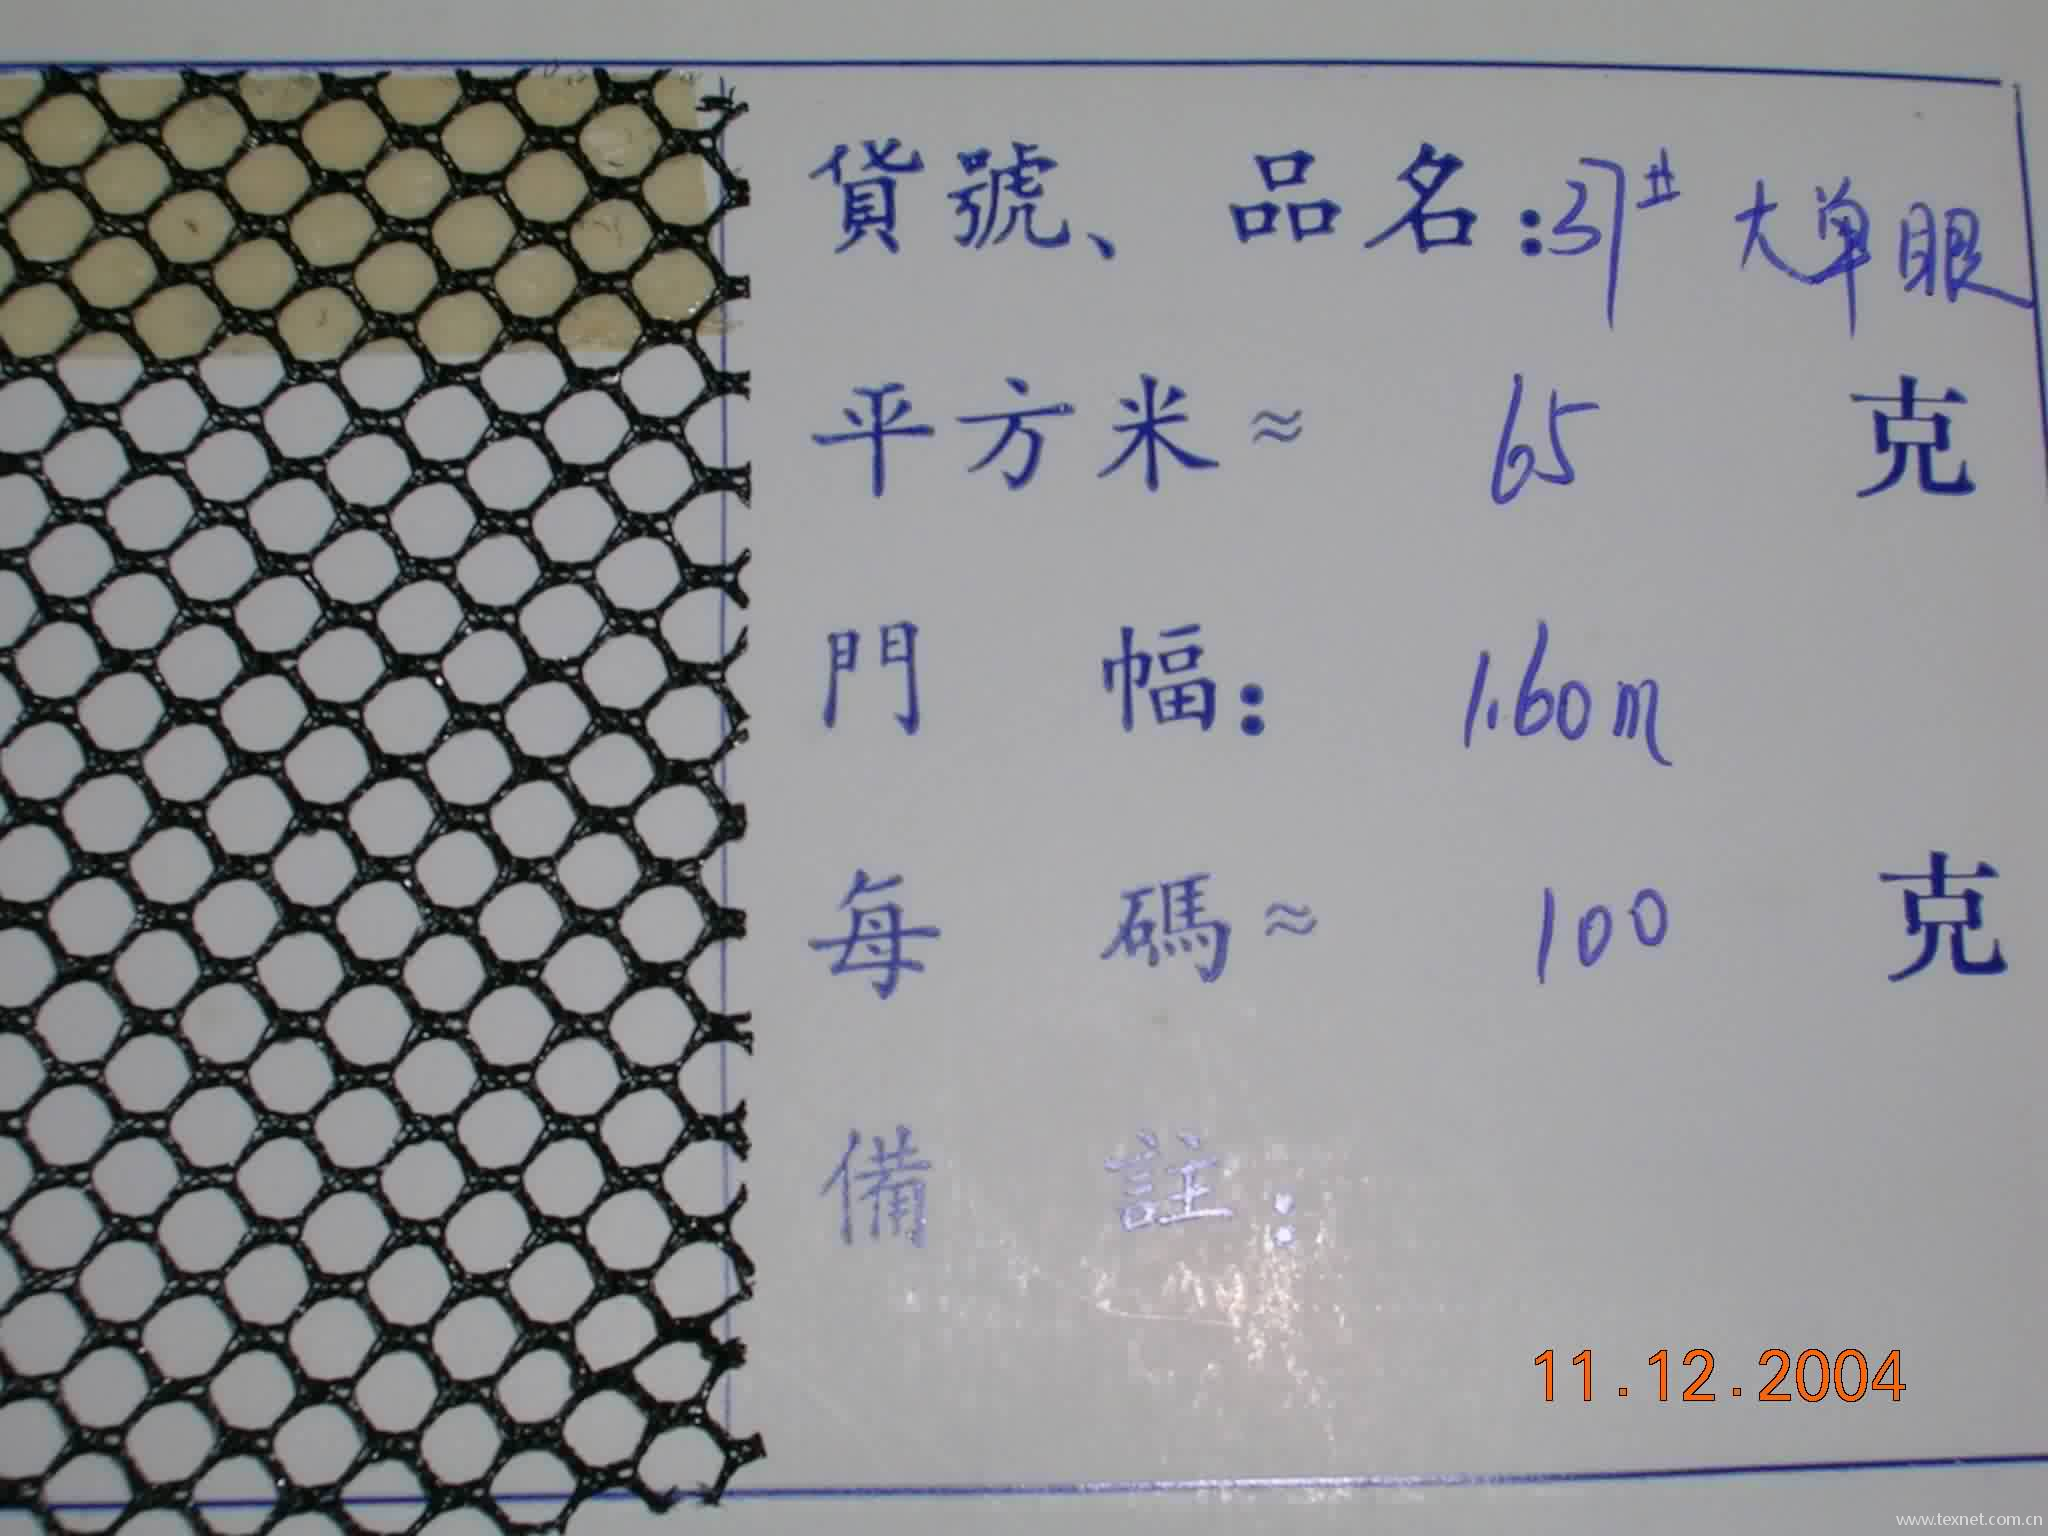 貨號、品名:37# 大单眼
平方米≈ 65 克
門幅: 1.60m
每碼≈ 100 克
備註:
11.12.2004
www.texnet.com.cn